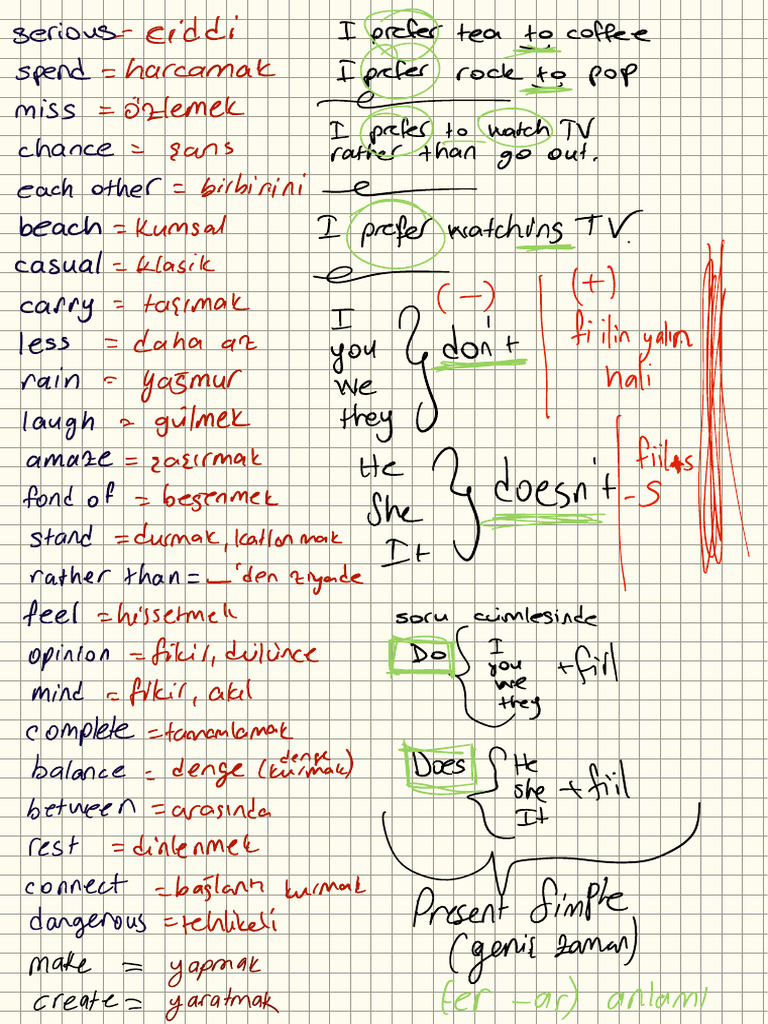 serious - ciddi
spend = harcamak
miss = özlemek
chance = şans
each other = birbirini
beach = kumsal
casual = klasik
carry = taşımak
less = daha az
rain = yağmur
laugh = gülmek
amaze = şaşırmak
fond of = beğenmek
stand = durmak, katlanmak
rather than = _'den ziyade
feel = hissetmek
opinion = fikir, düşünce
mind = fikir, akıl
complete = tamamlamak
balance = denge (denge kurmak)
between = arasında
rest = dinlenmek
connect = bağlantı kurmak
dangerous = tehlikeli
make = yapmak
create = yaratmak
I prefer tea to coffee
I prefer rock to pop
I prefer to watch TV
rather than go out.
I prefer watching TV.
(-) (+)
I
you
we
they
don't
fiilin yalın
hali
He
She
It
doesn't
fiil+s
-S
soru cümlesinde
Do
I
you
we
they
+fiil
Does
He
she
It
+fiil
Present Simple
(geniş zaman)
(er -ar) anlamı